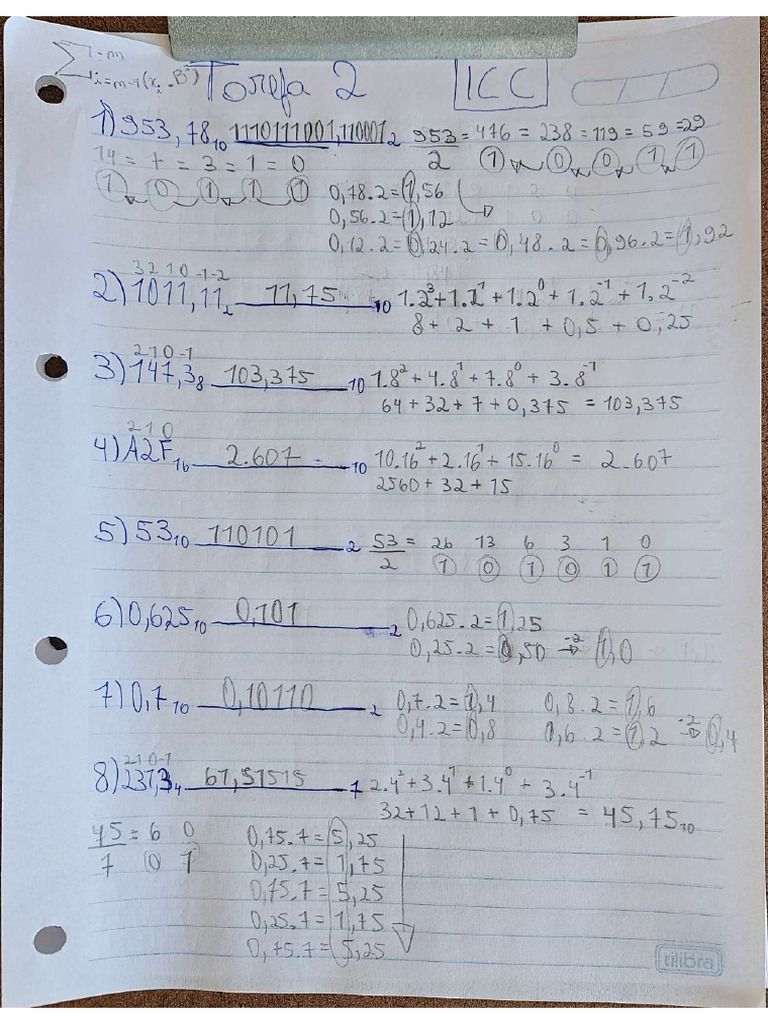 Σ i=m i=m-1 (xi . B^i)
Tarefa 2 ICC
1) 953,78₁₀ 1110111001,110001₂ 953/2 = 476 = 238 = 119 = 59 = 29
1 0 0 1 1
14 = 7 = 3 = 1 = 0
1 0 1 1 1
0,78.2=1,56
0,56.2=1,12
0,12.2=0,24.2=0,48.2=0,96.2=1,92
3 2 1 0 -1 -2
2) 1011,11₂ 11,75 ₁₀ 1.2³+1.2¹+1.2⁰+1.2⁻¹+1.2⁻²
8+2+1+0,5+0,25
2 1 0 -1
3) 147,3₈ 103,375 ₁₀ 1.8²+4.8¹+7.8⁰+3.8⁻¹
64+32+7+0,375 = 103,375
2 1 0
4) A2F₁₆ 2.607 ₁₀ 10.16²+2.16¹+15.16⁰ = 2.607
2560+32+15
5) 53₁₀ 110101 ₂ 53/2 = 26 13 6 3 1 0
1 0 1 0 1 1
6) 0,625₁₀ 0,101 ₂ 0,625.2=1,25
0,25.2=0,50 →.2 1,0
7) 0,7₁₀ 0,10110 ₂ 0,7.2=1,4 0,8.2=1,6
0,4.2=0,8 0,6.2=1,2 →.2 0,4
2 1 0 -1
8) 231,3₄ 61,51515 7 2.4²+3.4¹+1.4⁰+3.4⁻¹
32+12+1+0,75 = 45,75₁₀
45/7 = 6 0
0,75.7=5,25
0,25.7=1,75
0,75.7=5,25
0,25.7=1,75
0,75.7=5,25
tilibra